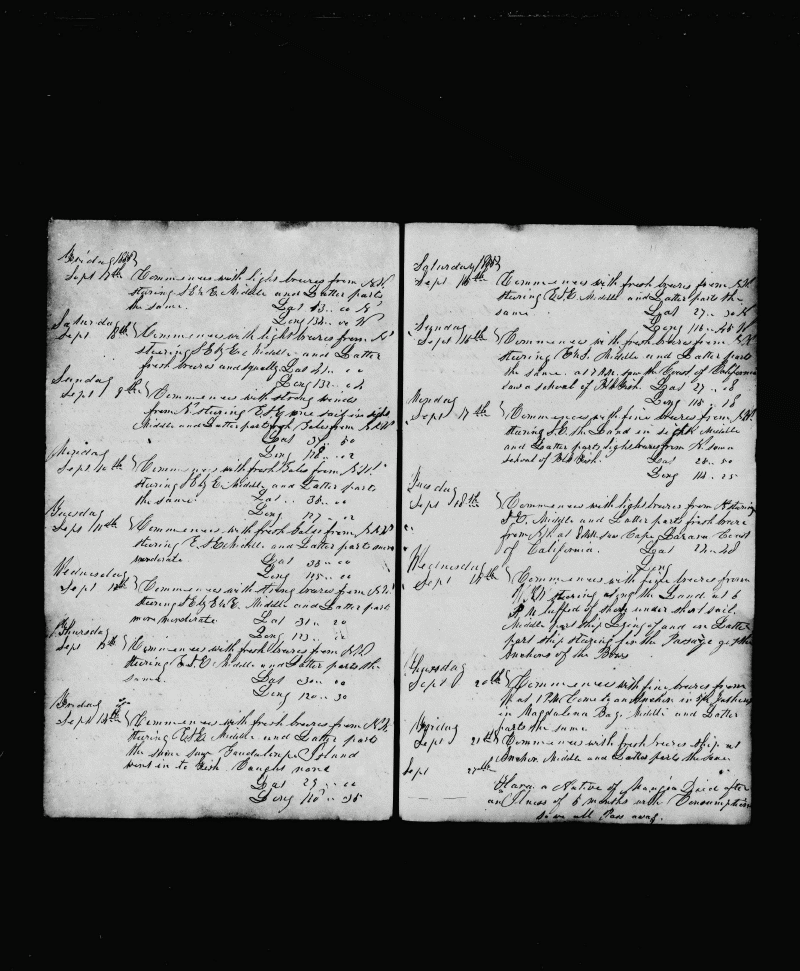 Friday
Sept 7th Commences with light breezes from N.W.
stering S E by E Middle and Latter parts
the same. Lat 43 .. 00 N
Long 134 .. 00 W
Saturday
Sept 8th Commences with light breezes from N
stering S E by E Middle and Latter
fresh breezes and squally Lat 41 .. 00
Long 131 ..
Sunday
Sept 9th Commences with strong winds
from N stering E.S.E. one sail in sight
Middle and Latter part Gales from N.N.W
Lat 39 .. 50
Long 128 .. 02
Monday
Sept 10th Commences with fresh Gales from N.W.
stering S E by E Middle and Latter parts
the same. Lat .. 38 .. 00
Long 127 ..
Tuesday
Sept 11th Commences with fresh Gales from N.N.W
stering E.S.E. Middle and Latter part more
moderate Lat 33 .. 00
Long 125 .. 00
Wednesday
Sept 12th Commences with strong breezes from N.W.
stering S E by E Middle and Latter part
more moderate Lat 31 .. 20
Long 123 ..
Thursday
Sept 13th Commences with fresh breezes from N.W.
stering E.S.E. Middle and Latter parts the
same. Lat 30 .. 00
Long 120 .. 30
Sept 14th Commences with fresh breezes from N.W.
stering E.S.E. Middle and Latter parts
the same saw Island
went in to fish Caught none
Lat 29 .. 00
Long 118 .. 35
Saturday
Sept 15th Commences with fresh breezes from N.W.
stering E.S.E. Middle and Latter parts the
same Lat 27 .. 30 N
Long 116 .. 45 W
Sunday
Sept 16th Commences with fresh breezes from N.W
stering Middle and Latter parts
the same. at P.M. saw the Coast of California
saw a school of Blk fish. Lat 27 .. 08
Long 115 .. 18
Monday
Sept 17th Commences with fine breezes from N.W.
stering S.E. the Land in sight Middle
and Latter parts light breezes from N. saw a
school of Blk fish. Lat 25 .. 50
Long 114 .. 25
Tuesday
Sept 18th Commences with light breezes from N stering
S.E. Middle and Latter parts fresh breeze
from N.W. at 8 AM saw Cape Coast
of California. Lat 24 .. 48
Long
Wednesday
Sept 19th Commences with fine breezes from
N.W. stering along the Land at 6
P.M. luffed off shore under short sail
Middle part ship Laying of and on Latter
part ship stering for the Passage got the
Anchors of the Bows
Thursday
Sept 20th Commences with fine breezes from
N at 1 P.M. Come to an Anchor in fathoms
in Magdalena Bay. Middle and Latter
parts the same.
Friday
Sept 21st Commences with fresh breezes ship at
Anchor Middle and Latter parts the same
Sept
a Native of Died after
an Illness of 6 months with Consumption
all Pass away.